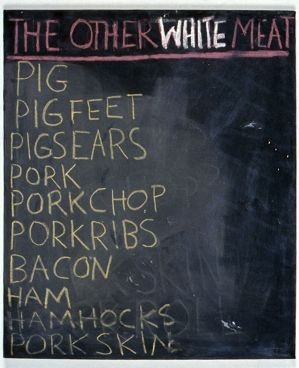 THE OTHER WHITE MEAT
PIG
PIGFEET
PIGSEARS
PORK
PORKCHOP
PORKRIBS
BACON
HAM
HAMHOCKS
PORKSKIN